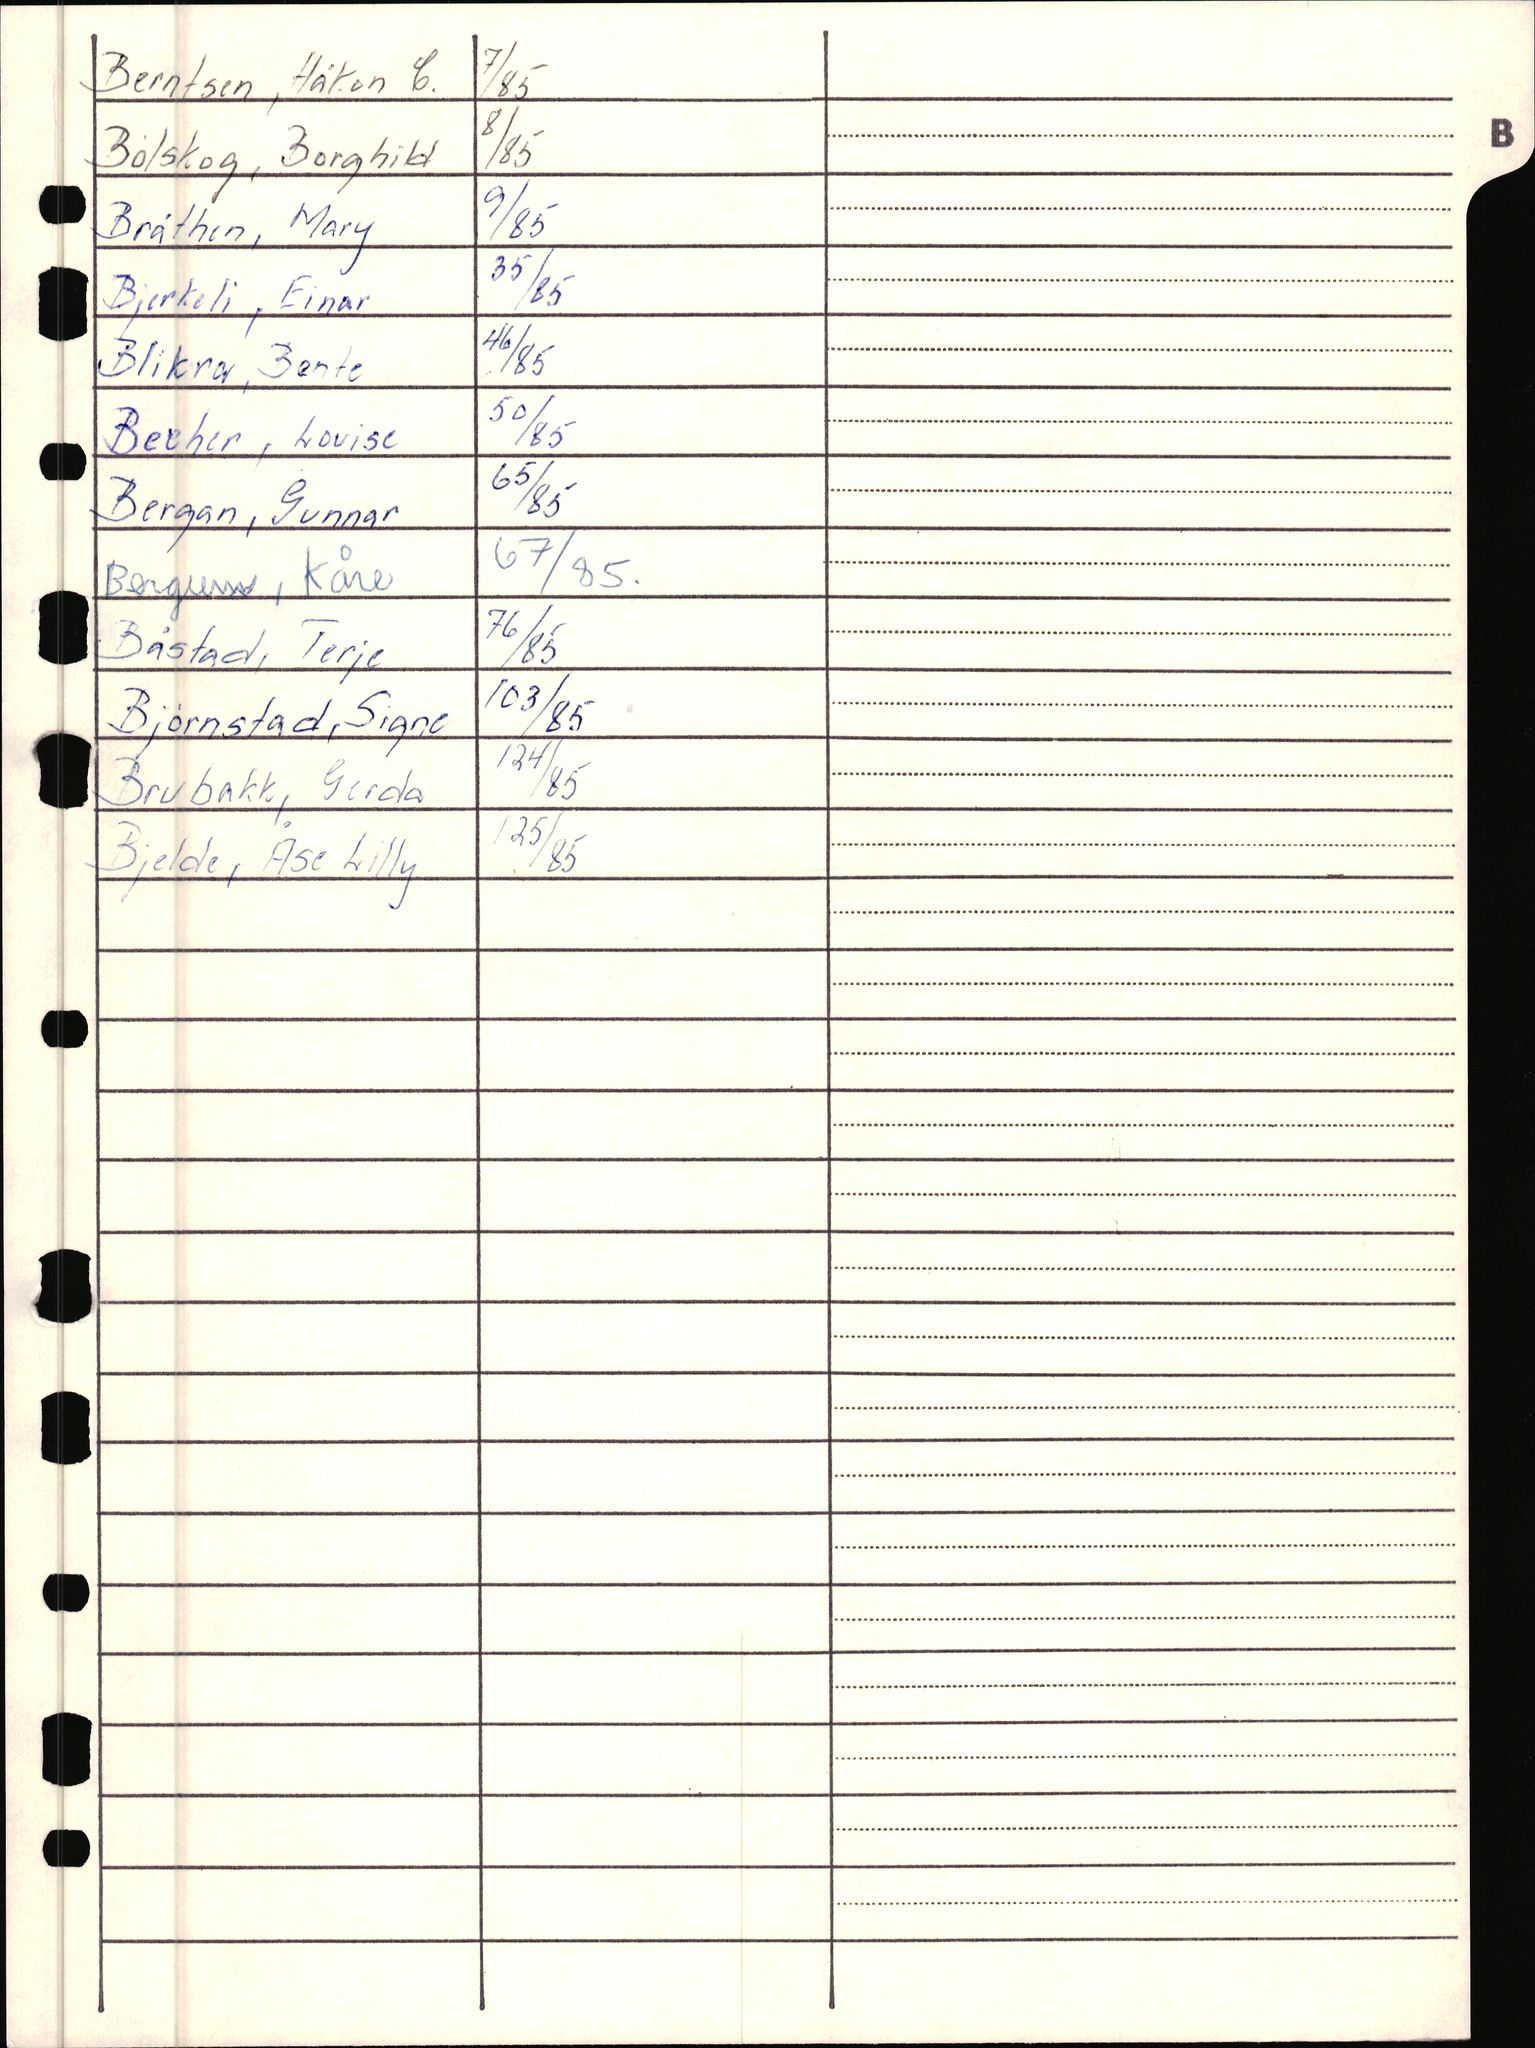 B
Berntsen, Håkon C. 7/85
Bölskog, Borghild 8/85
Bråthen, Mary 9/85
Bjerkeli, Einar 35/85
Blikra, Bente 46/85
Becher, Louise 50/85
Bergan, Gunnar 65/85
Kåre 67/85.
Båstad, Terje 76/85
Björnstad, Signe 103/85
Brubakk, Gerda 124/85
Bjelde, Åse Lilly 125/85